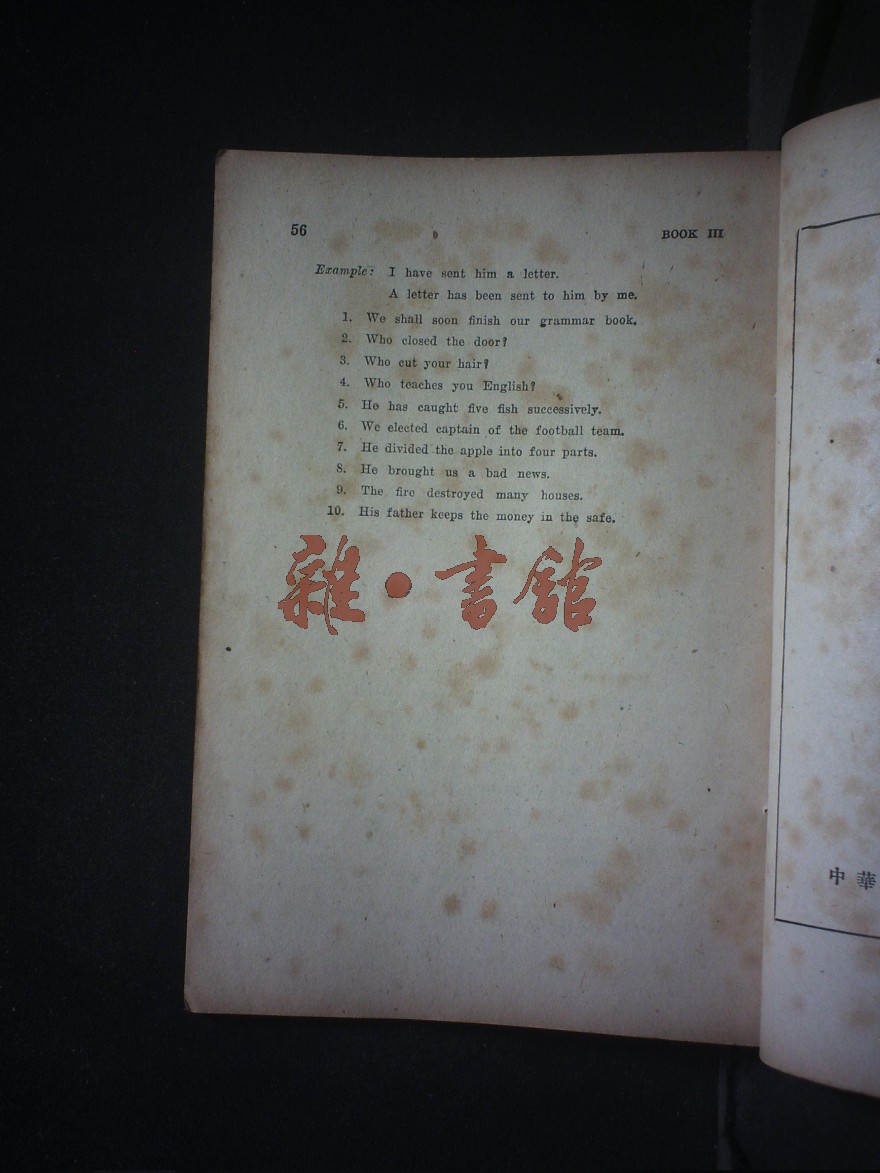 56
BOOK III
Example: I have sent him a letter.
A letter has been sent to him by me.
1. We shall soon finish our grammar book.
2. Who closed the door?
3. Who cut your hair?
4. Who teaches you English?
5. He has caught five fish successively.
6. We elected captain of the football team.
7. He divided the apple into four parts.
8. He brought us a bad news.
9. The fire destroyed many houses.
10. His father keeps the money in the safe.
雜·書館
中華